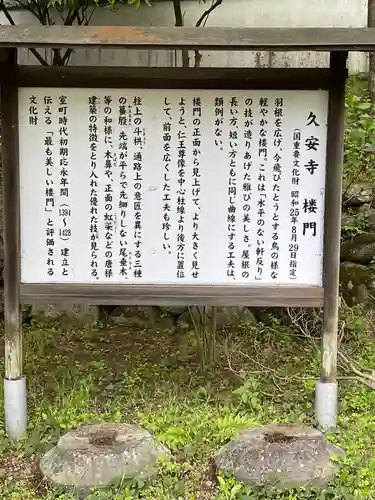 久安寺 楼門
(国重要文化財 昭和25年8月29日指定)
羽根を広げ、今飛びたとうとする鳥の様な
軽やかな楼門。これは「水平のない軒反り」
の技が造りあげた雅びの美しさ。屋根の
長い方、短い方ともに同じ曲線にする工夫は、
類例がない。
楼門の正面から見上げて、より大きく見せ
ようと、仁王尊像を中心柱線より後方に置位
して、前面を広くした工夫も珍しい。
柱上の斗栱、通路上の意匠を異にする三種
の蟇股、先端が平らで先細りしない尾垂木、
等の和様に、木鼻や、正面の虹梁などの唐様
建築の特徴をとり入れた優れた技が見られる。
室町時代初期応永年間(1394~1428)建立と
伝える「最も美しい楼門」と評価される
文化財